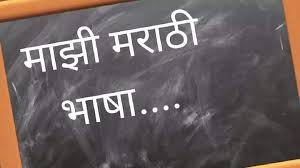 माझी मराठी
भाषा....